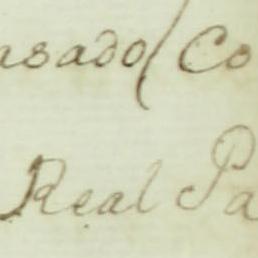 asado/ Co
Real Pa